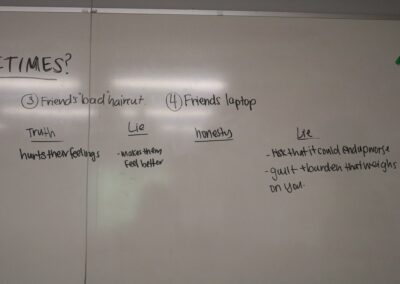 ETIMES?
③ Friends "bad" haircut ④ Friends laptop
Truth
hurts their feelings
Lie
- makes them
feel better
honesty
Lie
- that it could end up worse
- guilt + burden that weighs
on you.